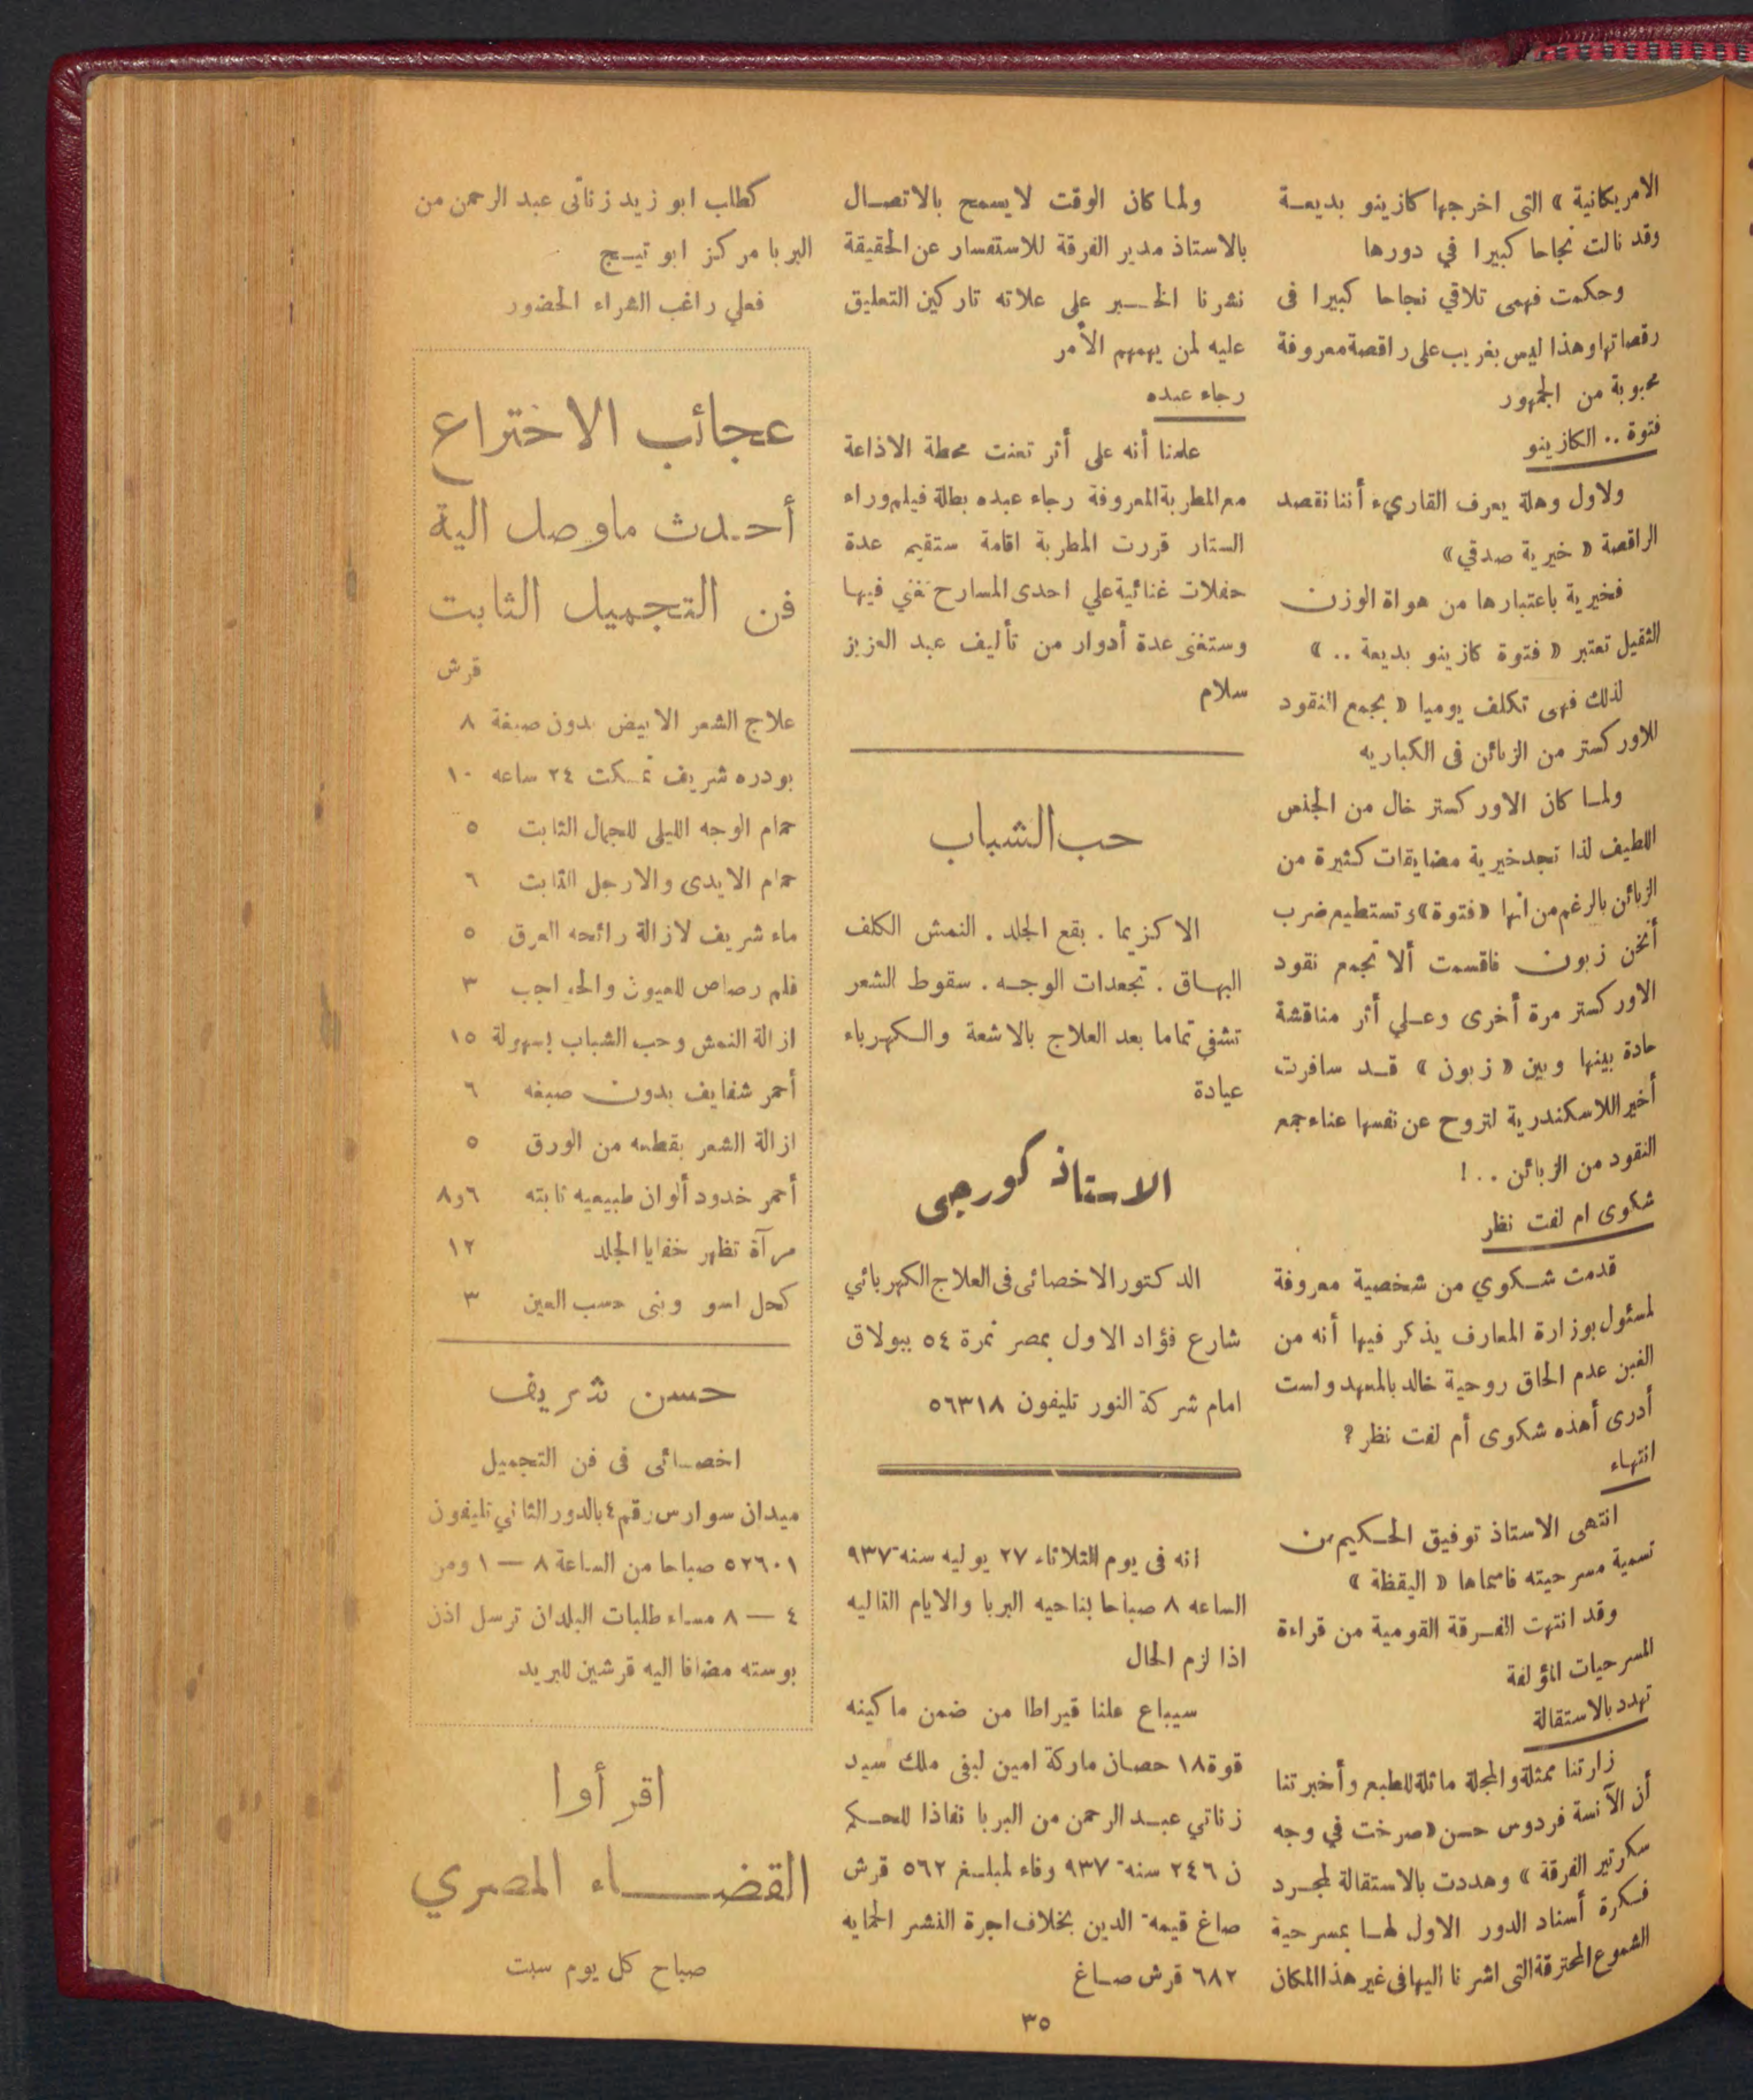 الامريكانية » التى اخرجها كازينو بديعة
وقد نالت نجاحا كبيرا في دورها
وحكمت فهمى تلاقي نجاحا كبيرا فى
رقصاتها وهذا ليس بغريب على راقصة معروفة
محبوبة من الجمهور
فتوة .. الكازينو
ولاول وهلة يعرف القاريء أننا نقصد
الراقصة « خيرية صدقي »
فخيرية باعتبارها من هواة الوزن
الثقيل تعتبر « فتوة كازينو بديعة .. »
لذلك فهى تكلف يوميا « بجمع النقود
للاوركستر من الزبائن فى الكباريه
ولما كان الاوركستر خال من الجنس
اللطيف لذا تجد خيرية مضايقات كثيرة من
الزبائن بالرغم من انها «فتوة» وتستطيع ضرب
أتخن زبون فاقسمت ألا تجمع نقود
الاوركستر مرة أخرى وعلي أثر مناقشة
حادة بينها وبين « زبون » قد سافرت
أخيرا للاسكندرية لتروح عن نفسها عناء جمع
النقود من الزبائن .. !
شكوى ام لفت نظر
قدمت شكوي من شخصية معروفة
لمسئول بوزارة المعارف يذكر فيها أنه من
الغبن عدم الحاق روحية خالد بالمعهد ولست
أدرى أهذه شكوى أم لفت نظر ؟
انتهاء
انتهى الاستاذ توفيق الحكيم من
تسمية مسرحيته فاسماها « اليقظة »
وقد انتهت الفرقة القومية من قراءة
المسرحيات المؤلفة
تهدد بالاستقالة
زارتنا ممثلة والمجلة ماثلة للطبع وأخبرتنا
أن الآنسة فردوس حسن «صرخت في وجه
سكرتير الفرقة » وهددت بالاستقالة لمجرد
فكرة أسناد الدور الاول لها بمسرحية
الشموع المحترقة التى اشرنا اليها فى غير هذا المكان
ولما كان الوقت لايسمح بالاتصال
بالاستاذ مدير الفرقة للاستفسار عن الحقيقة
نشرنا الخبر على علاته تاركين التعليق
عليه لمن يهمهم الأمر
رجاء عبده
علمنا أنه على أثر تعنت محطة الاذاعة
مع المطربة المعروفة رجاء عبده بطلة فيلم وراء
الستار قررت المطربة اقامة ستقيم عدة
حفلات غنائية علي احدى المسارح تغني فيها
وستغنى عدة أدوار من تأليف عبد العزيز
سلام
حب الشباب
الاكزيما . بقع الجلد . النمش الكلف
البهاق . تجعدات الوجه . سقوط الشعر
تشفي تماما بعد العلاج بالاشعة والكهرباء
عيادة
الاستاذ كورجى
الدكتور الاخصائى فى العلاج الكهربائي
شارع فؤاد الاول بمصر نمرة ٥٤ ببولاق
امام شركة النور تليفون ٥٦٣١٨
انه فى يوم الثلاثاء ٢٧ يوليه سنة ٩٣٧
الساعه ٨ صباحا بناحيه البربا والايام التاليه
اذا لزم الحال
سيباع علنا قيراطا من ضمن ماكينه
قوة ١٨ حصان ماركة امين ليفى ملك سيد
زناتي عبد الرحمن من البربا نفاذا للحكم
ن ٢٤٦ سنة ٩٣٧ وفاء لمبلغ ٥٦٢ قرش
صاغ قيمة الدين بخلاف اجرة النشر الحمايه
٦٨٢ قرش صاغ
كطلب ابو زيد زناتى عبد الرحمن من
البربا مركز ابو تيج
فعلي راغب الشراء الحضور
عجائب الاختراع
أحدث ماوصل الية
فن التجميل الثابت
قرش
علاج الشعر الابيض بدون صبغة ٨
بودره شريف تمكث ٢٤ ساعه ١٠
حمام الوجه الليلى للجمال الثابت ٥
حمام الايدى والارجل الثابت ٦
ماء شريف لازالة رائحه العرق ٥
قلم رصاص للعيون والحواجب ٣
ازالة النمش وحب الشباب بسهولة ١٥
أحمر شفايف بدون صبغه ٦
ازالة الشعر بقطعه من الورق ٥
أحمر خدود ألوان طبيعيه ثابته ٦و٨
مرآة تظهر خفايا الجلد ١٢
كحل اسو وبنى حسب العين ٣
حسن شريف
اخصائى فى فن التجميل
ميدان سوارس رقم ٤ بالدور الثاني تليفون
٥٢٦٠١ صباحا من الساعة ٨ — ١ ومن
٤ — ٨ مساء طلبات البلدان ترسل اذن
بوسته مضافا اليه قرشين للبريد
اقرأوا
القضاء المصري
صباح كل يوم سبت
٣٥